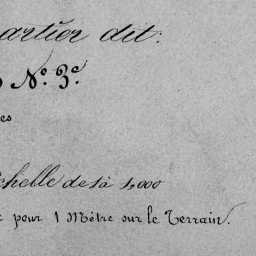 artier dit:
N.º 3.e
es
chelle de 1 à 1,000
pour 1 Mètre sur le Terrain.